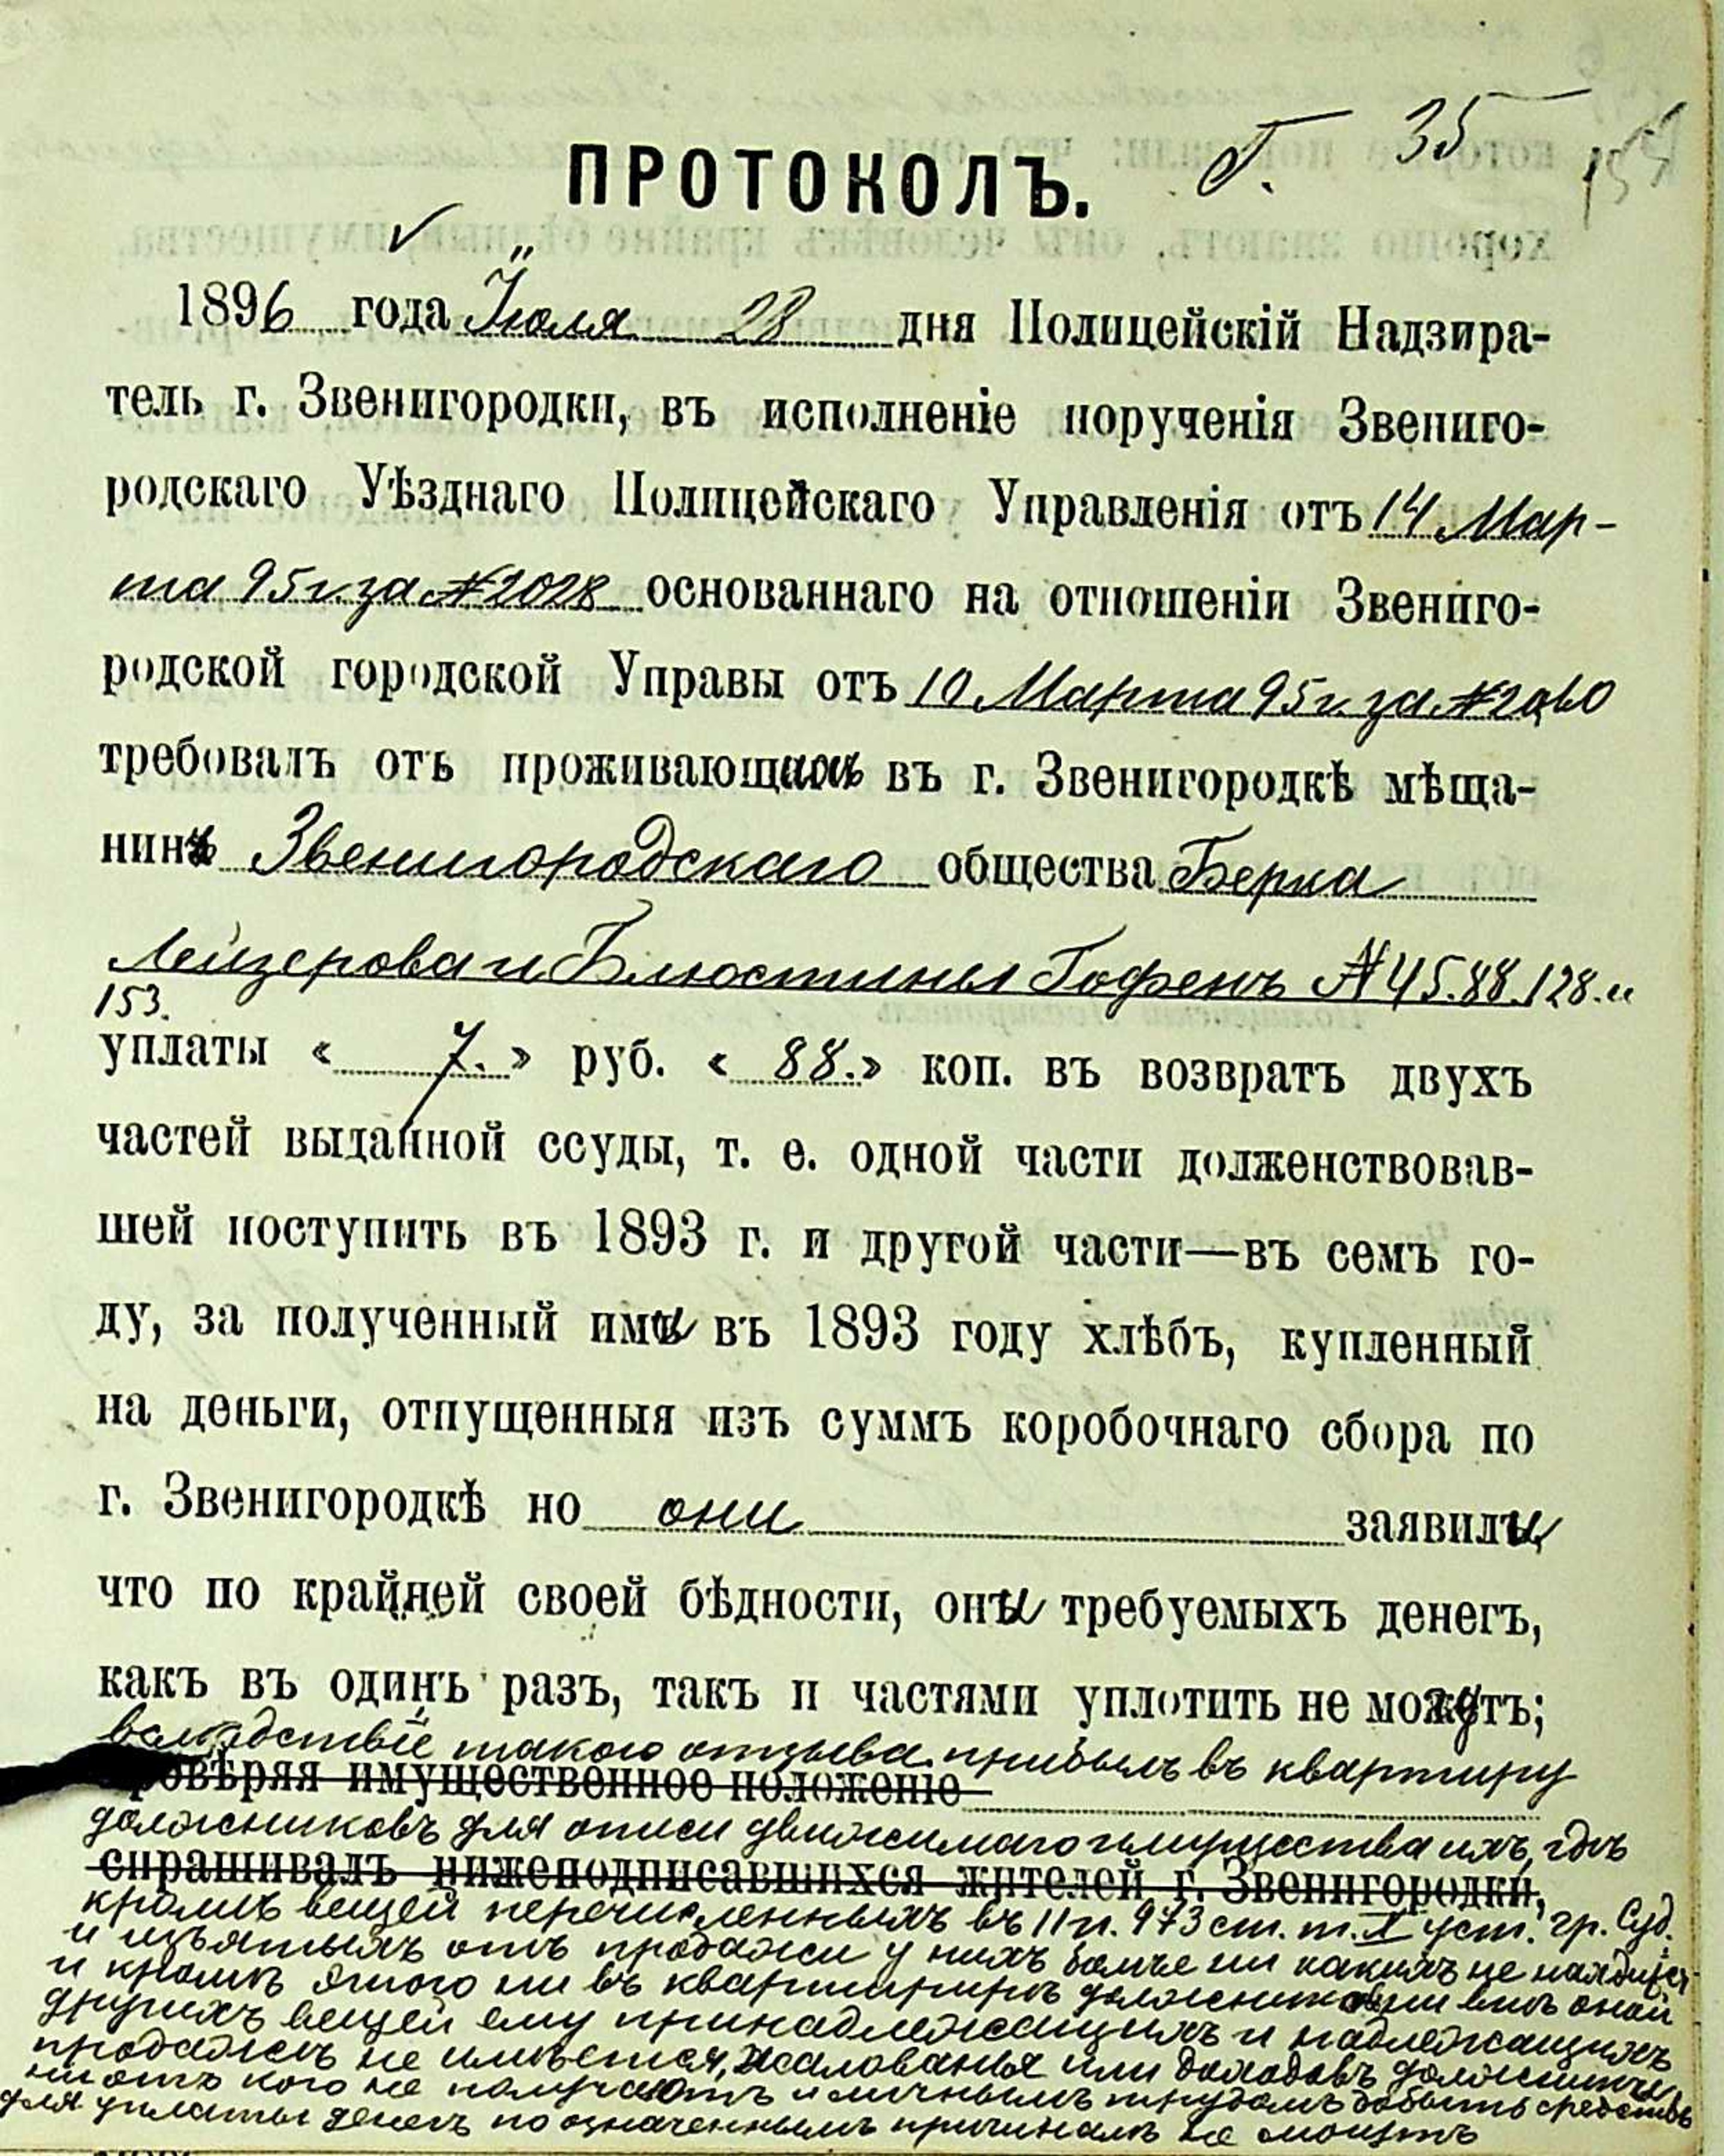 Г. 35
ПРОТОКОЛЪ.
1896 года Іюля 28 дня Полицейскій Надзира-
тель г. Звенигородки, въ исполненіе порученія Звениго-
родскаго Уѣзднаго Полицейскаго Управленія отъ 14 Мар-
та 95 г. за № 2028 основаннаго на отношеніи Звениго-
родской городской Управы отъ 10 Марта 95 г. за №
требовалъ отъ проживающихъ въ г. Звенигородкѣ мѣща-
нинъ Звенигородскаго общества Берка
Лейзерова и Блюстины Гофенъ № 45. 88. 128. и
153.
уплаты « 7. » руб. « 88. » коп. въ возвратъ двухъ
частей выданной ссуды, т. е. одной части долженствовав-
шей поступить въ 1893 г. и другой части—въ семъ го-
ду, за полученный ими въ 1893 году хлѣбъ, купленный
на деньги, отпущенныя изъ суммъ коробочнаго сбора по
г. Звенигородкѣ но они заявили
что по крайней своей бѣдности, они требуемыхъ денегъ,
какъ въ одинъ разъ, такъ и частями уплотить не могутъ;
вслѣдствіе такого отзыва прибылъ въ квартиру
провѣряя имущественное положеніе
должниковъ для описи движимаго имущества ихъ, гдѣ
спрашивалъ нижеподписавшихся жителей г. Звенигородки,
кромѣ вещей перечисленныхъ въ 11 п. 973 ст. т. X уст. гр. Суд.
и изъятыхъ отъ продажи у нихъ болѣе ни какихъ не
и кромѣ этого ни въ квартирѣ ни внѣ оной
другихъ вещей ему принадлежащихъ и надлежащихъ
продажѣ не имѣется, жалованья или доходовъ должники
ни отъ кого не получаютъ и личнымъ трудомъ добыть средствъ
для уплаты денегъ по означеннымъ причинамъ не могутъ